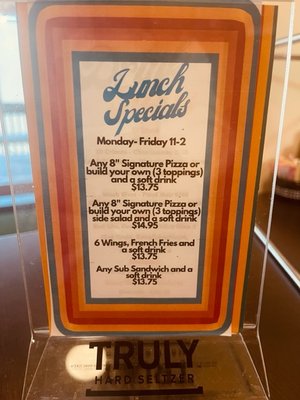 Lunch
Specials
Monday- Friday 11-2
Any 8" Signature Pizza or
build your own (3 toppings)
and a soft drink
$13.75
Any 8" Signature Pizza or
build your own (3 toppings)
side salad and a soft drink
$14.95
6 Wings, French Fries and
a soft drink
$13.75
Any Sub Sandwich and a
soft drink
$13.75
TRULY
HARD SELTZER